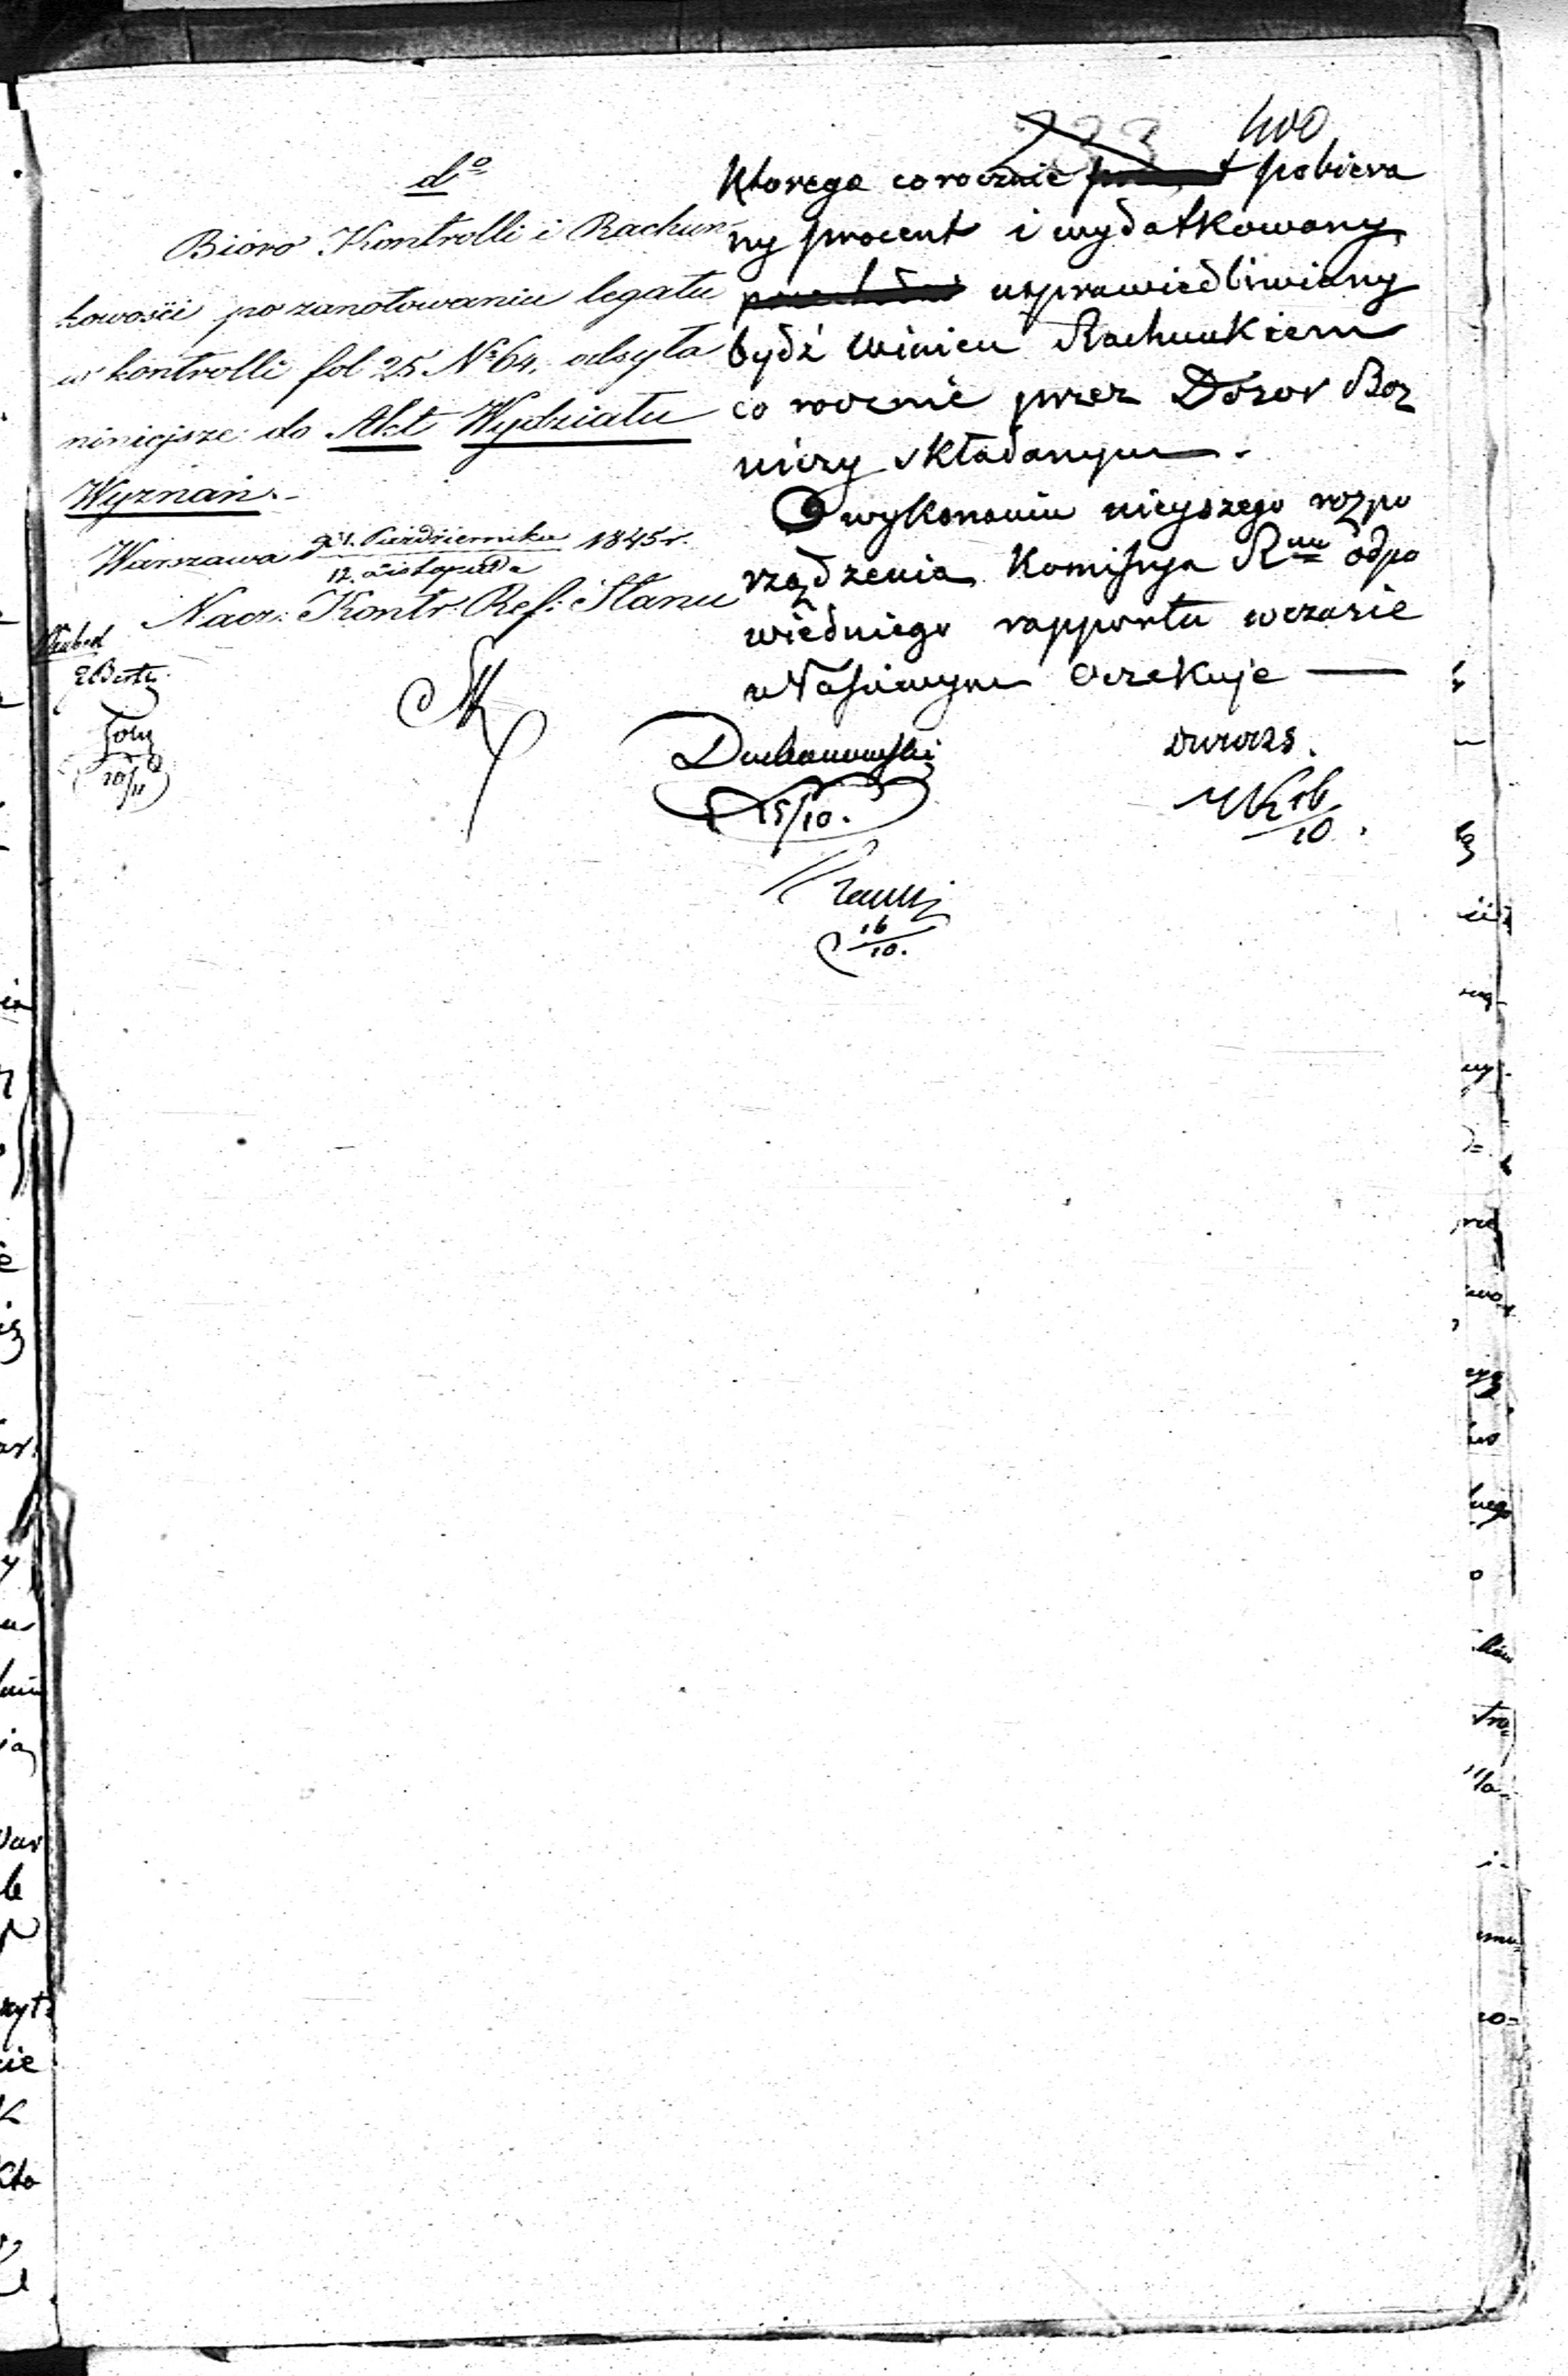 400
d<sup>o</sup>
Bióro Kontrolli i Rachun-
kowości po zanotowaniu legatu
w kontrolli fol 25 N<sup>o</sup> 64. odsyła
niniejsze do Akt Wydziału
Wyznań.-
Warszawa d 31. Października 1845 r.
12. Listopada
Nacz: Kontr: Ref: Stanu
20/11
Ktorego corocznie pobiera
ny procent i wydatkowany
usprawiedliwiany
bydź winien Rachunkiem
co rocznie przez Dozor Boz
niczy składanym.
O wykonaniu nieyszego rozpo
rządzenia Kommissya R<sup>wa</sup> odpo
wiedniego rapportu wczasie
właściwym oczekuje —
15/10.
16/10.
16/10.